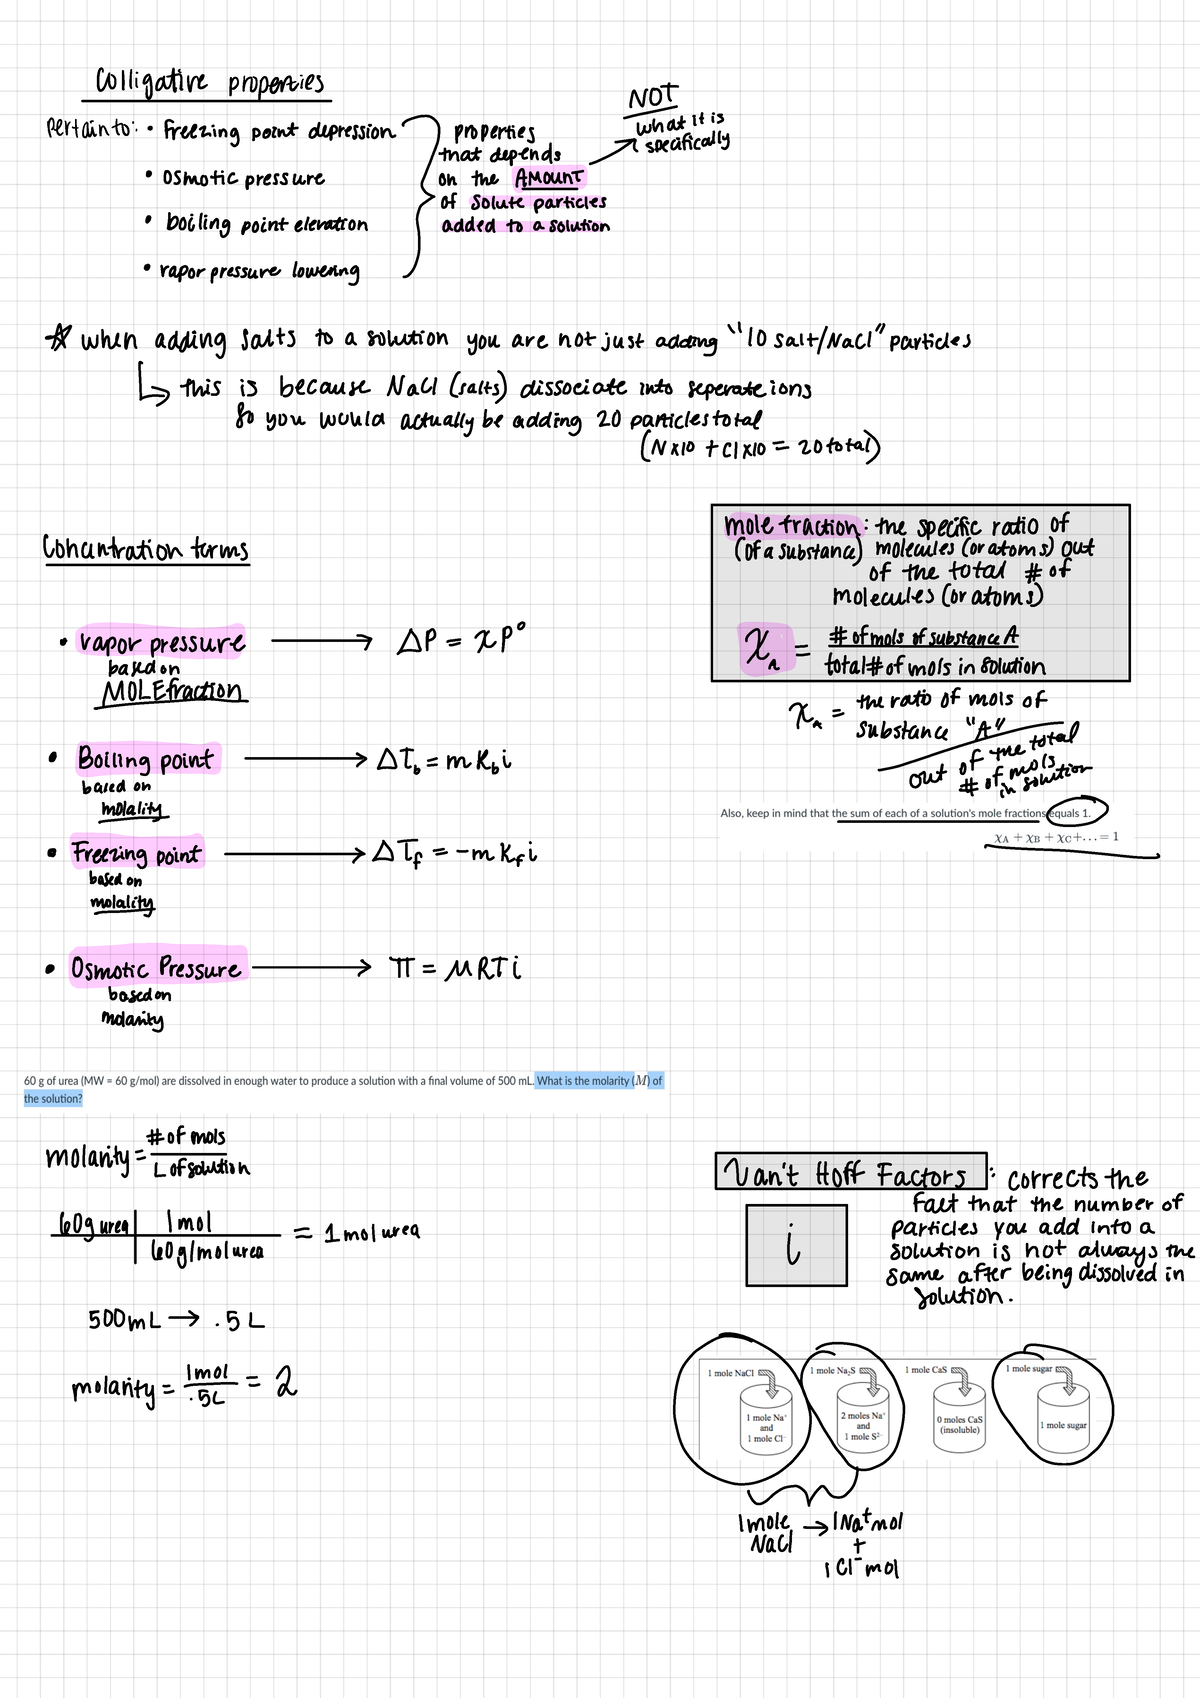 Colligative properties
pertain to: • freezing point depression
• osmotic pressure
• boiling point elevation
• vapor pressure lowering
properties
that depends
on the AMOUNT
of solute particles
added to a solution
NOT
what it is
specifically
☆ when adding salts to a solution you are not just adding "10 salt/NaCl" particles
↳ this is because NaCl (salts) dissociate into seperate ions
so you would actually be adding 20 particles total
(N x10 + Cl x10 = 20 total)
Concentration terms
• vapor pressure → ΔP = χP°
based on
MOLE fraction
• Boiling point → ΔT_b = m K_b i
based on
molality
• Freezing point → ΔT_f = -m K_f i
based on
molality
• Osmotic Pressure → π = MRTi
based on
molarity
mole fraction: the specific ratio of
(of a substance) molecules (or atoms) out
of the total # of
molecules (or atoms)
χ_A = # of mols of substance A
total # of mols in solution
χ_A = the ratio of mols of
substance "A"
out of the total
# of mols
in solution
Also, keep in mind that the sum of each of a solution's mole fractions equals 1.
χA + χB + χC+...= 1
60 g of urea (MW = 60 g/mol) are dissolved in enough water to produce a solution with a final volume of 500 mL. What is the molarity (M) of
the solution?
molarity = # of mols
L of solution
60g urea | 1 mol
60g/mol urea = 1 mol urea
500mL → .5 L
molarity = 1mol
.5L = 2
Van't Hoff Factors : corrects the
fact that the number of
particles you add into a
solution is not always the
same after being dissolved in
solution.
i
1 mole NaCl
1 mole Na⁺
and
1 mole Cl⁻
1 mole Na₂S
2 moles Na⁺
and
1 mole S²⁻
1 mole CaS
0 moles CaS
(insoluble)
1 mole sugar
1 mole sugar
1 mole → 1 Na⁺ mol
NaCl +
1 Cl⁻ mol